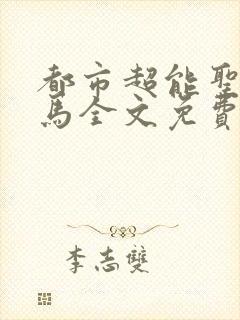 都市超能聖
馬全文免費
李志雙